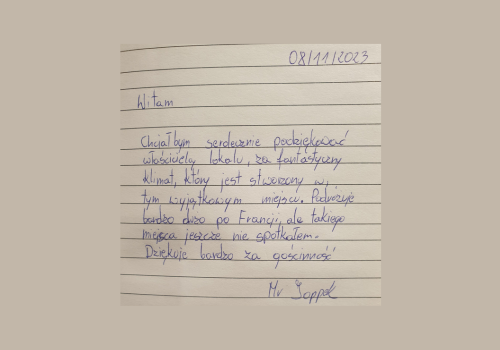 08/11/2023
Witam
Chciałbym serdecznie podziękować
właścicielą lokalu, za fantastyczny
klimat, który jest stworzony w
tym wyjątkowym miejscu. Podróżuje
bardzo dużo po Francji, ale takiego
miejsca jeszcze nie spotkałem.
Dziękuje bardzo za gościnność
Mr